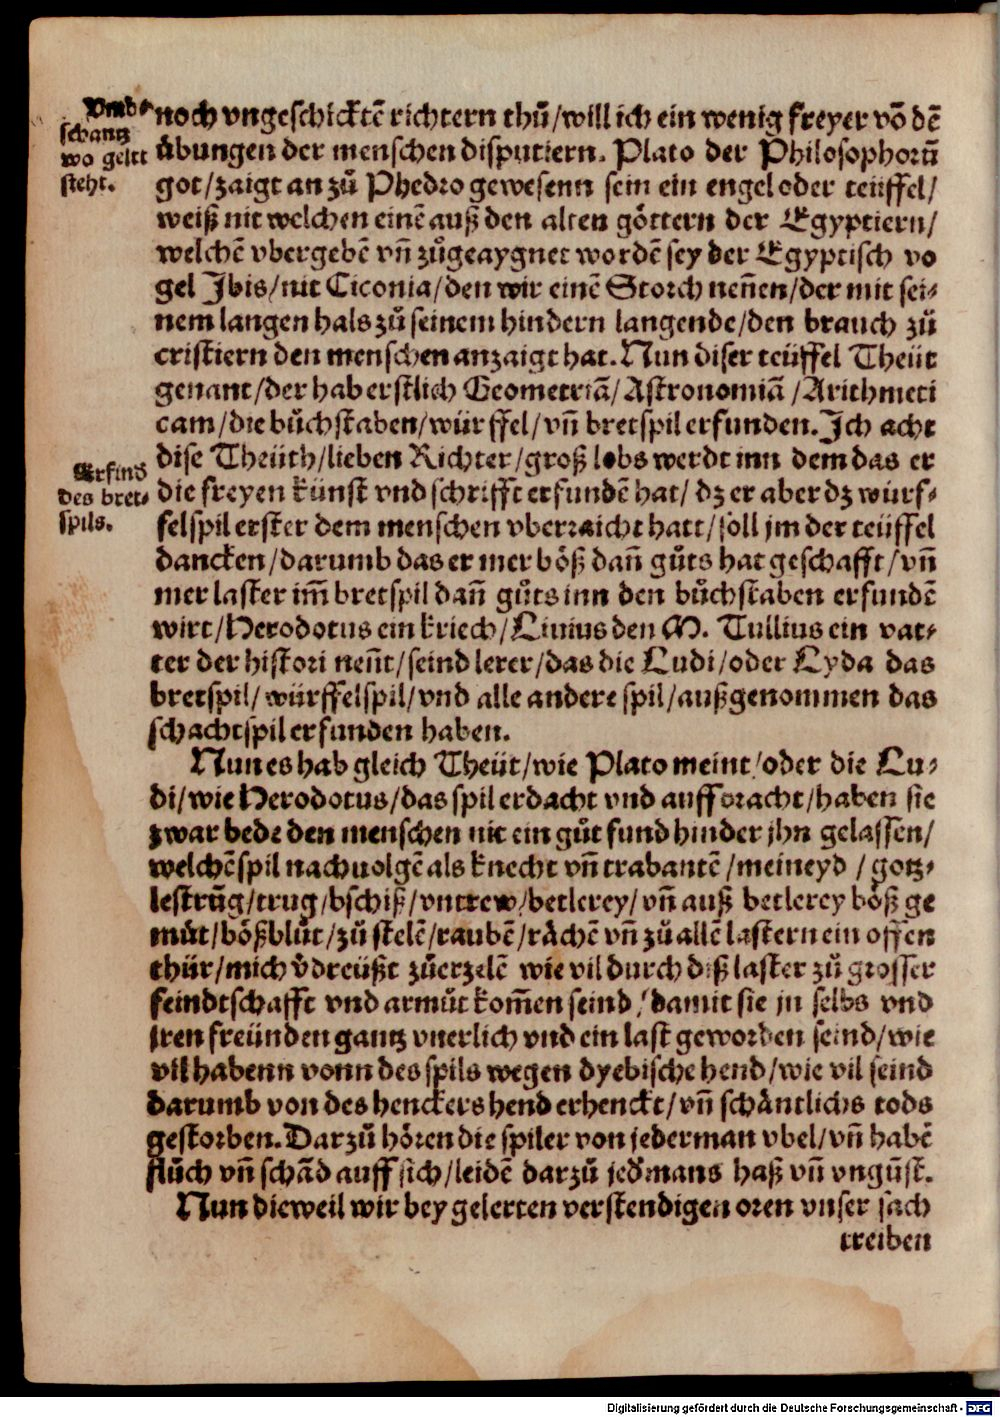 Vmb⸗
schantz
wo geltt
steht.
noch vngeschicktẽ richtern thů/will ich ein wenig freyer võ dẽ
übungen der menschen disputiern. Plato der Philosophorũ
got/zaigt an zů Phedro gewesenn sein ein engel oder teüffel/
weiß nit welchen einẽ auß den alten göttern der Egyptiern/
welchẽ vbergebẽ vñ zůgeaygnet wordẽ sey der Egyptisch vo
gel Ibis/nit Ciconia/den wir einẽ Storch neñen/der mit sei⸗
nem langen hals zů seinem hindern langende/den brauch zů
cristiern den menschen anzaigt hat. Nun diser teüffel Theüt
genant/der hab erstlich Geometriã/Astronomiã/Arithmeti
cam/die bůchstaben/würffel/vñ bretspil erfunden. Ich acht
Erfind
des bret⸗
spils.
dise Theüth/lieben Richter/groß lobs werdt inn dem das er
die freyen künst vnd schrifft erfundẽ hat/ dz er aber dz würf⸗
felspil erster dem menschen vberraicht hatt/soll jm der teüffel
dancken/darumb das er mer böß dañ gůts hat geschafft/vñ
mer laster im̃ bretspil dañ gůts inn den bůchstaben erfundẽ
wirt/Herodotus ein kriech/Liuius den M. Tullius ein vat⸗
ter der histori neñt/seind lerer/das die Ludi/oder Lyda das
bretspil/würffelspil/vnd alle andere spil/außgenommen das
schachtspil erfunden haben.
Nun es hab gleich Theüt/wie Plato meint/oder die Lu⸗
di/wie Herodotus/das spil erdacht vnd auffbracht/haben sie
zwar bede den menschen nit ein gůt fund hinder jhn gelassen/
welchẽ spil nachuolgẽ als knecht vñ trabantẽ/meineyd/gotz⸗
lestrũg/trug/bschiß/vntrew/betlerey/vñ auß betlerey böß ge
müt/bößblůt/zů stelẽ/raubẽ/rächẽ vñ zů allẽ lastern ein offen
thür/mich v̉dreüßt zůerzelẽ wie vil durch diß laster zů grosser
feindtschafft vnd armůt kom̃en seind/damit sie jn selbs vnd
jren freünden gantz vnerlich vnd ein last geworden seind/wie
vil habenn vonn des spils wegen dyebische hend/wie vil seind
darumb von des henckers hend erhenckt/vñ schäntlichs tods
gestorben. Darzů hören die spiler von jederman vbel/vñ habẽ
flůch vñ schãd auff sich/leidẽ darzů jed̉mans haß vñ vngũst.
Nun dieweil wir bey gelerten verstendigen oren vnser sach
treiben
Digitalisierung gefördert durch die Deutsche Forschungsgemeinschaft - DFG